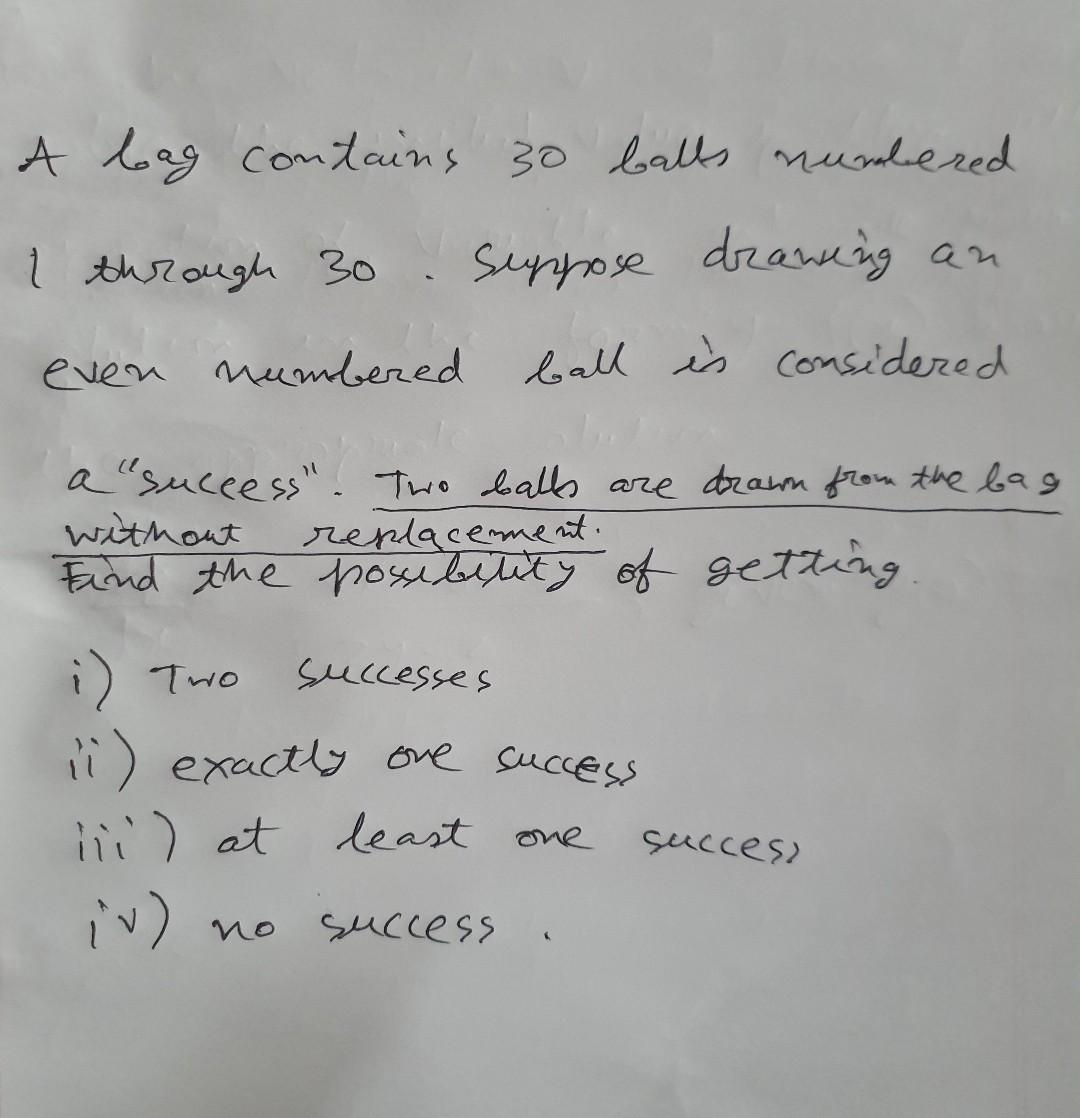 A bag contains 30 balls numbered
1 through 30. Suppose drawing an
even numbered ball is considered
a "success". Two balls are drawn from the bag
without replacement.
Find the possibility of getting.
i) Two successes
ii) exactly one success
iii) at least one success
iv) no success.